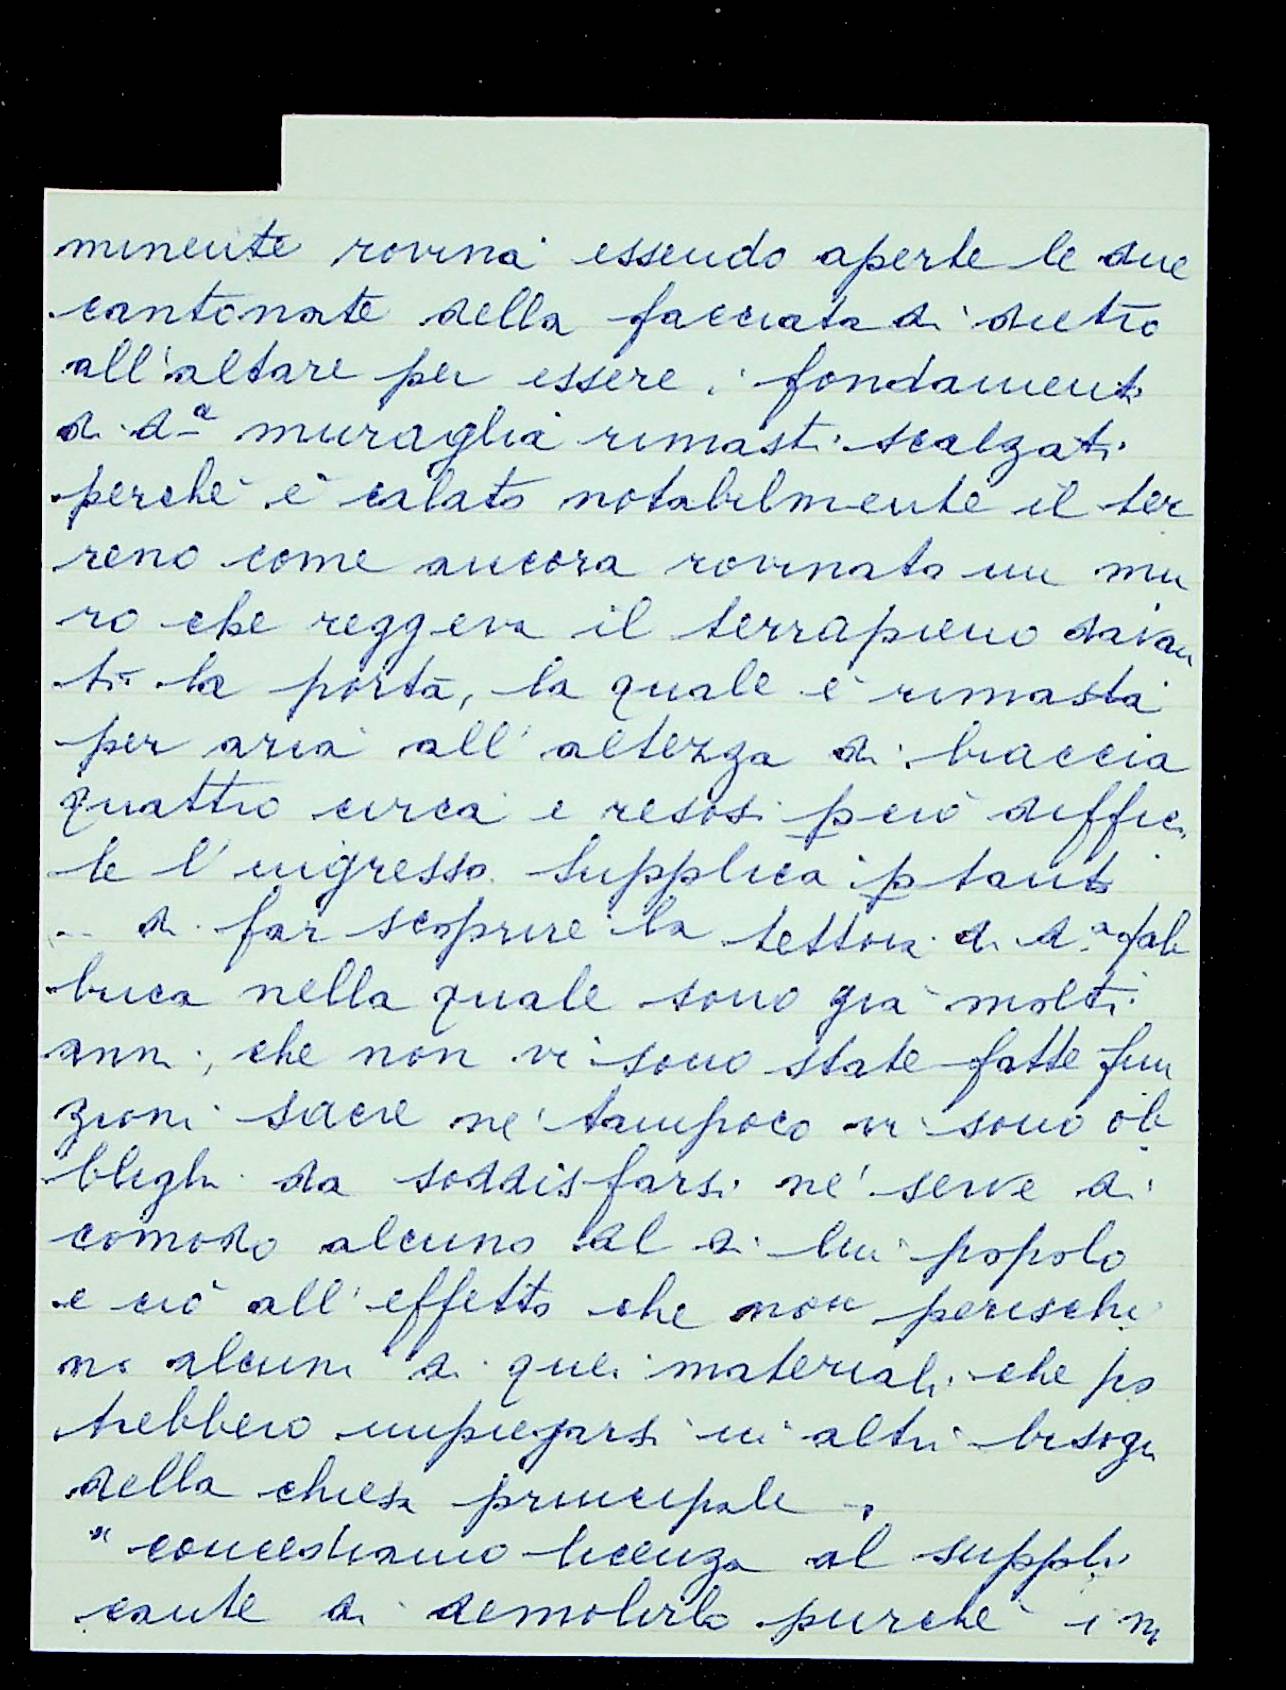 minente rovina essendo aperte le due
cantonate della facciata di dietro
all'altare per essere i fondamenti
di d.ª muraglia rimasti scalzati
perchè è calato notabilmente il ter
reno come ancora rovinata un mu
ro che reggeva il terrapieno davan
ti la porta, la quale è rimasta
per aria all'altezza di braccia
quattro circa e resosi però diffici
le l'ingresso. Supplica p tanto
... di far scoprire la tettoia di d.ª fab
brica nella quale sono già molti
anni, che non vi sono state fatte fun
zioni sacre nè tampoco vi sono ob
blighi da soddisfarsi nè serve di
comodo alcuno al di lui popolo
e ciò all'effetto che non perischi
no alcuni di quei materiali che po
trebbero impiegarsi in altri bisogni
della chiesa principale -,
" concediamo licenza al suppli
cante di demolirlo purchè i m